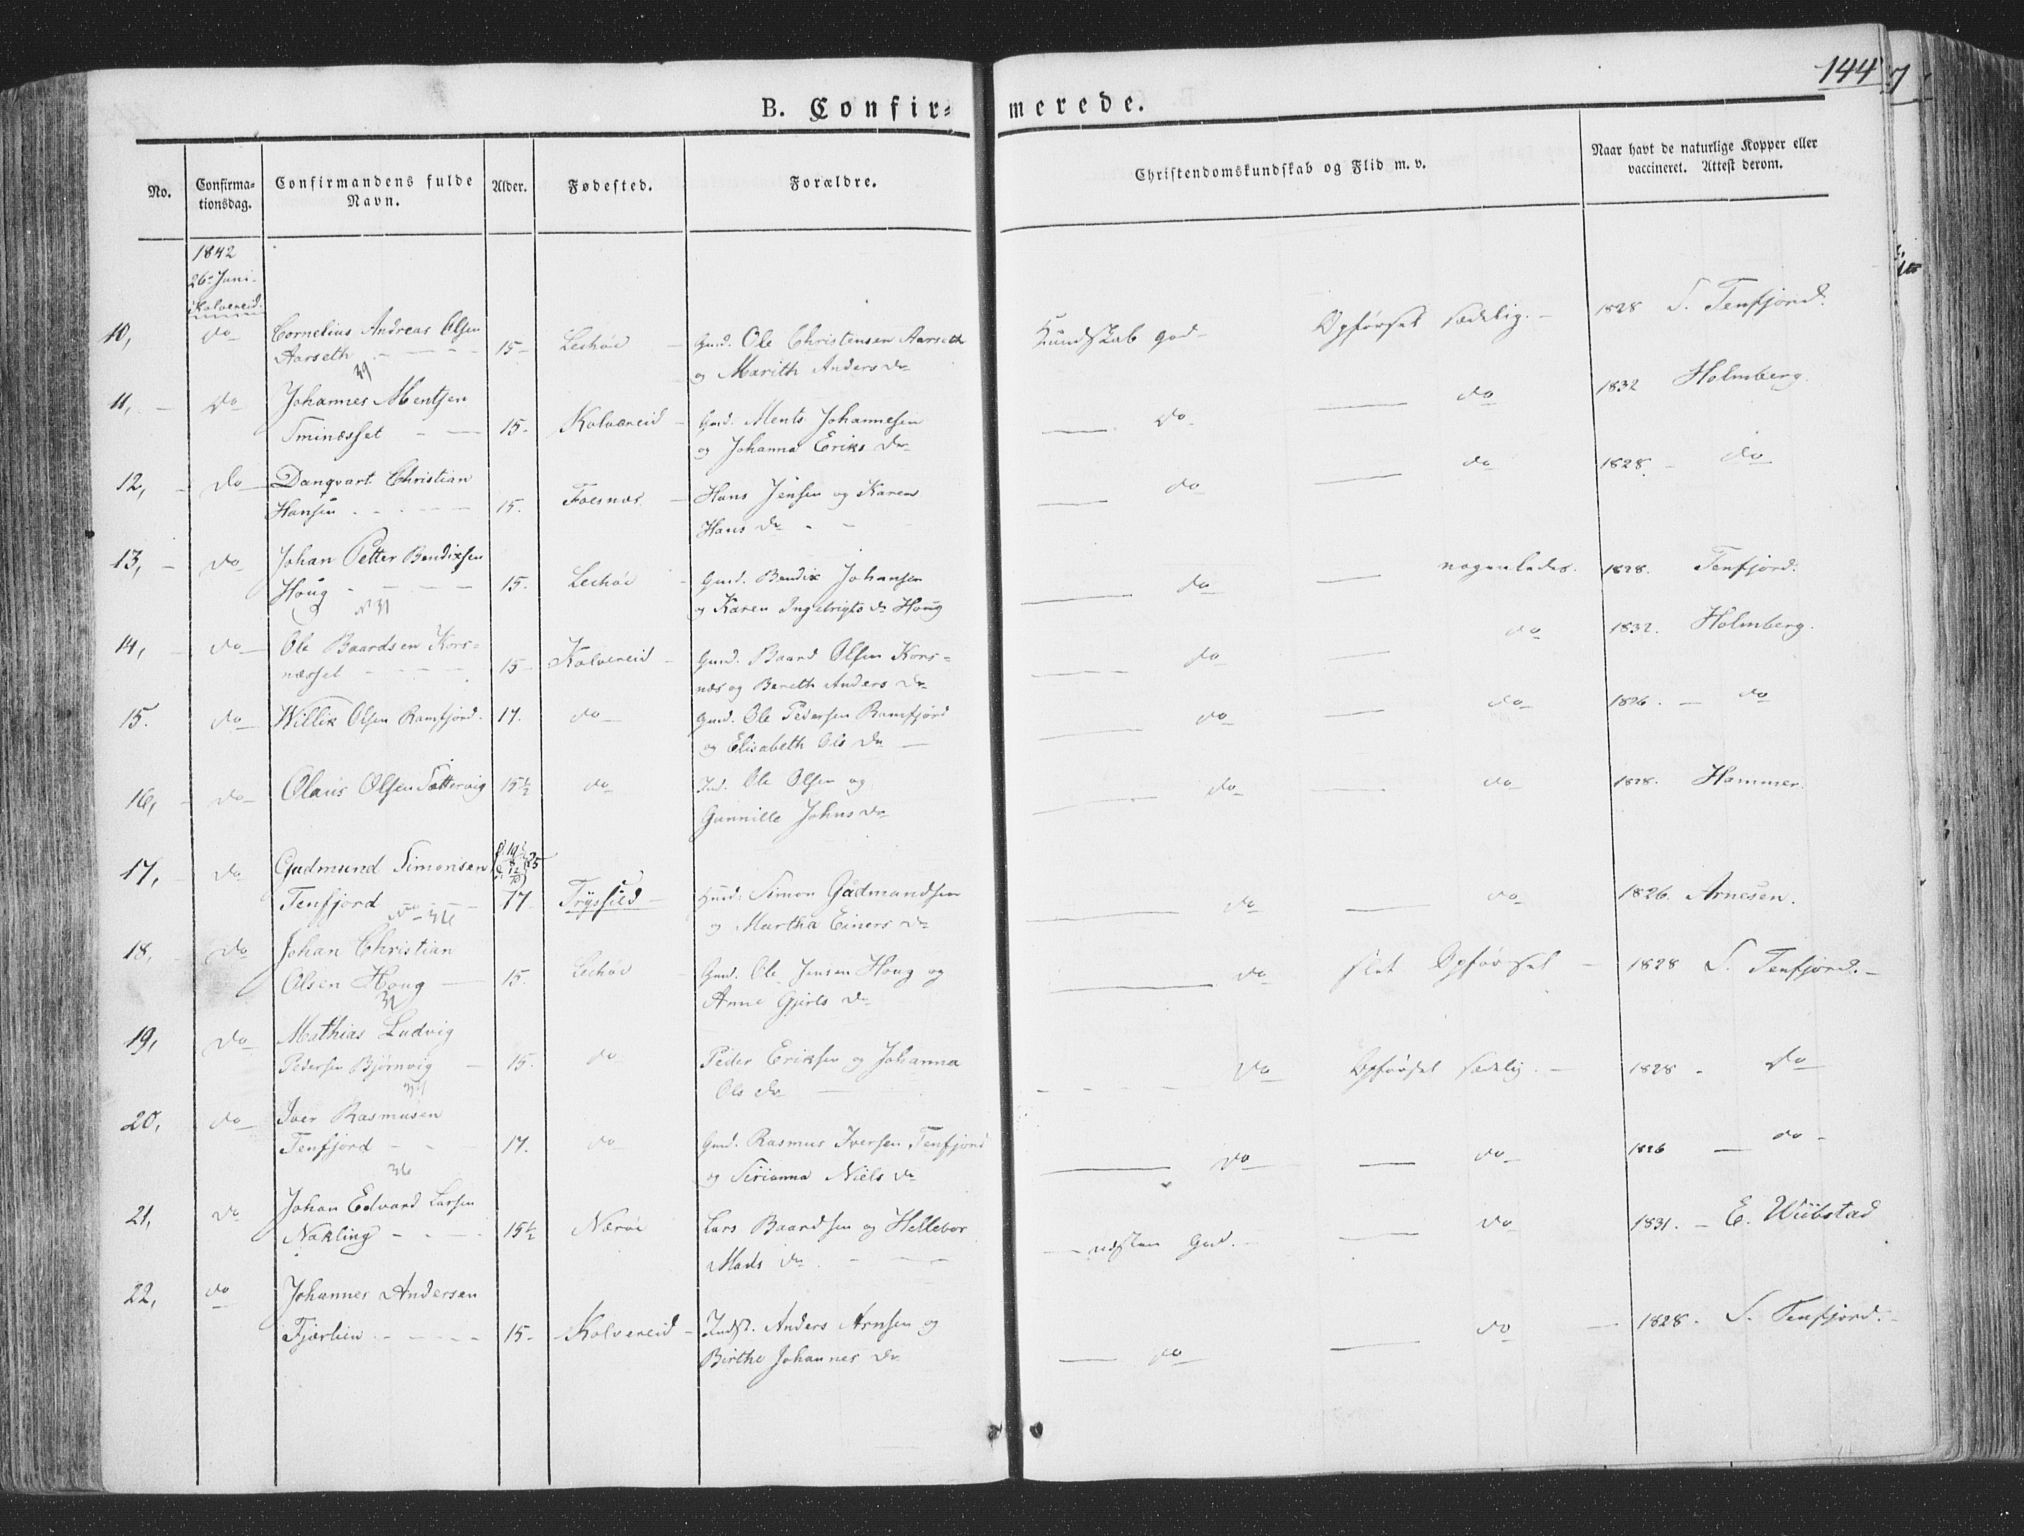 144
7
B. Confir-
merede.
No.
Confirma-
tionsdag.
Confirmandens fulde
Navn.
Alder.
Fødested.
Forældre.
Christendomskundskab og Flid m. v.
Naar havt de naturlige Kopper eller
vaccineret. Attest derom.
1842
26de Juni
Kolvereid.
10, do Cornelius Andreas Olsen
Aarseth 15 Lechöe Gmd. Ole Christensen Aarseth
og Marith Anders Dr Kundskab god Opförsel sædelig. 1828 S. Tenfjord.
39
11, do Johannes Mentsen
Sminæsset 15 Kolvereid Gmd. Ments Johannesen
og Johanna Eriks Dr do do 1832 Holmberg.
12, do Danqvart Christian
Hansen 15. Foesnæs Hans Jensen og Karen
Hans Dr do do 1828. do
13, do Johan Petter Bendixsen
Houg 15. Lechöe Gmd. Bendix Johansen
og Karen Ingebrigts Dr Houg do nogenledes. 1828. Tenfjord.
N 31
14, do Ole Baardsen Kors-
næsset 15 Kolvereid Gmd. Baard Olsen Kors-
næs og Bereth Anders Dr do do 1832. Holmberg.
15. do Willik Olsen Ramfjord. 17. do Gmd. Ole Pedersen Ramfjord
og Elisabeth Ols Dr do do 1826. do
16, do Olaus Olsen Sættervig 15½ do Ind. Ole Olsen og
Gunnille Johns Dr do do 1828. Hammer.
17, do Gudmund Simonsen
Tenfjord 17 Trysild Huusd. Simon Gudmandsen
og Martha Einers Dr do do 1826. Arnesen.
No 36
18, do Johan Christian
Olsen Houg 15. Lechöe Gmd. Ole Jensen Houg og
Anne Gjerts Dr do slet Opförsel 1828 S. Tenfjord.
32
19, do Mathias Ludvig
Pedersen Bjørnvig 15. do Peder Eriksen og Johanna
Ols Dr do Opförsel sædelig. 1828 do
34
20, do Iver Rasmusen
Tenfjord 17. do Gmd. Rasmus Iversen Tenfjord
og Sirianna Niels Dr do do 1826 do
36
21, do Johan Edvard Larsen
Nakling 15½ Nærøe Lars Baardsen og Hellebor
Mads Dr næsten God. do 1831. E. Wiibstad
22, do Johannes Andersen
Fjærlien 15 Kolvereid Indst. Anders Arnsen og
Birthe Johannes Dr do do 1828. S. Tenfjord.